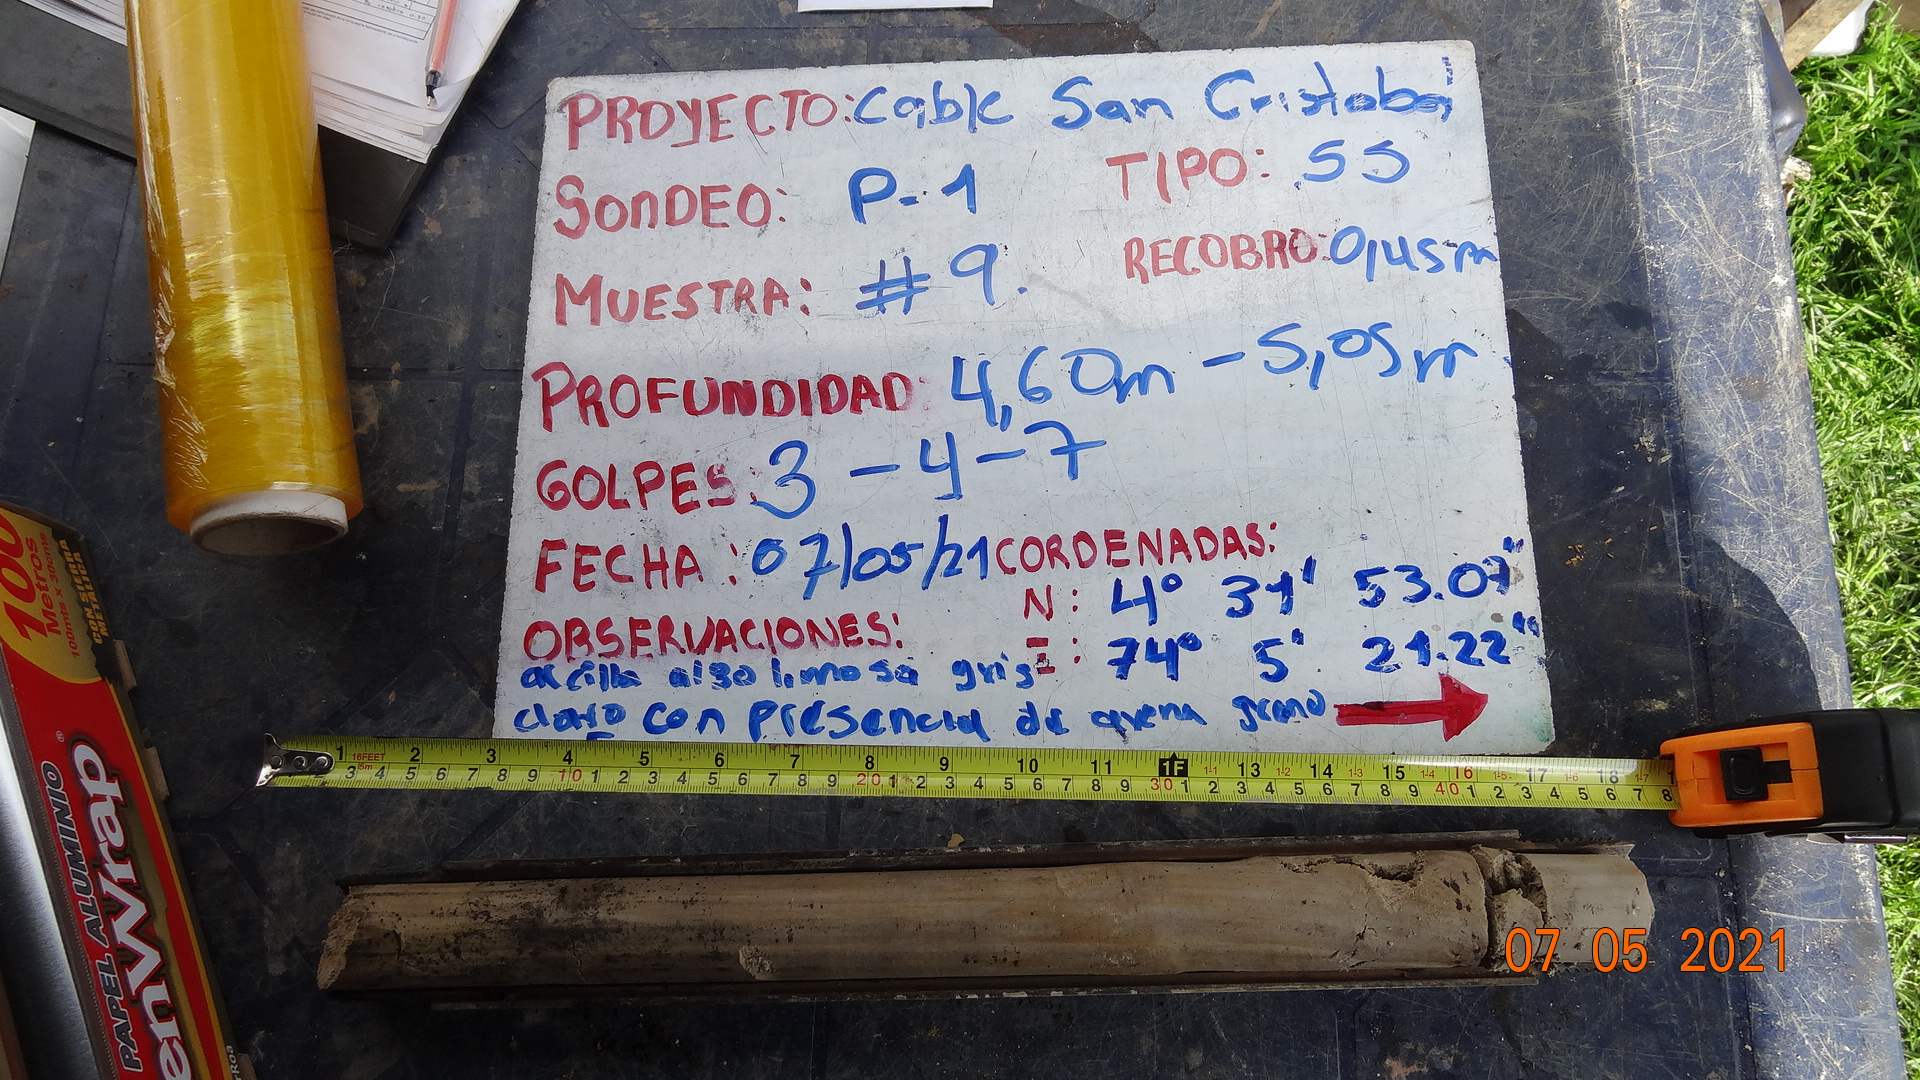 PROYECTO: Cable San Cristobal
SONDEO: P-1 TIPO: SS
MUESTRA: #9. RECOBRO: 0,45m
PROFUNDIDAD: 4,60m - 5,05m
GOLPES: 3 - 4 - 7
FECHA: 07/05/21 CORDENADAS:
N: 4° 31' 53.07"
OBSERVACIONES: E: 74° 5' 21.22"
arcilla algo limosa gris
claro con presencia de arena grano
1 16FEET 2 3 4 5 6 7 8 9 10 11 1F 1-1 13 1-2 14 1-3 15 1-4 16 1-5 17 1-6 18 1-7
5m 3 4 5 6 7 8 9 10 1 2 3 4 5 6 7 8 9 20 1 2 3 4 5 6 7 8 9 30 1 2 3 4 5 6 7 8 9 40 1 2 3 4 5 6 7 8
100
Metros
100mts x 30cms
CON SIERRA
METÁLICA
PAPEL ALUMINIO
enWrap
07 05 2021